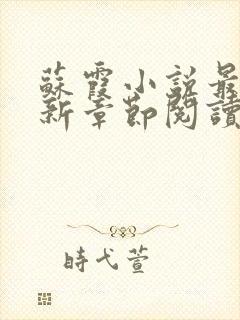 蘇霞小說最
新章節閱讀
時弋萱